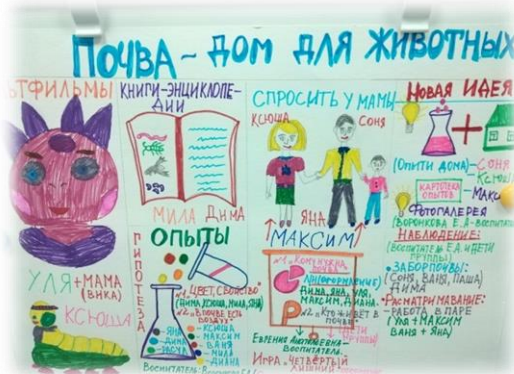 ПОЧВА - ДОМ ДЛЯ ЖИВОТНЫХ
ЬТФИЛЬМЫ
УЛЯ + МАМА
(ВИКА)
КСЮША
КНИГИ-ЭНЦИКЛОПЕ-
ДИИ
МИЛА ДИМА
ГИПОТЕЗА
ОПЫТЫ
№1 ЦВЕТ, СВОЙСТВО
(ДИМА, КСЮША, МИЛА, ЯНА)
№2 В ПОЧВЕ ЕСТЬ
ВОЗДУХ?
ЯНА
ДИМА
КСЮША
МАКСИМ
ВАНЯ
МИЛА
ДИАНА
ВОСПИТАТЕЛЬ:
СПРОСИТЬ У МАМЫ
КСЮША
СОНЯ
ЯНА
МАКСИМ
№1 КОМУ НУЖНА
ПОЧВА
ДИМА, ЯНА, УЛЯ,
МАКСИМ, ДИАНА
№2 КТО ЖИВЁТ В
ПОЧВЕ
ДЕТИ
ГРУППЫ
ВОСПИТАТЕЛЬ
ИГРА „ЧЕТВЁРТЫЙ
НОВАЯ ИДЕЯ
(ОПЫТИ ДОМА) - СОНЯ
КСЮША
КАРТОТЕКА
ОПЫТОВ
МАКС
ФОТОГАЛЕРЕЯ
(ВОРОНКОВА Е.А- ВОСПИТА
НАБЛЮДЕНИЕ:
(ВОСПИТАТЕЛЬ Е.А. И ДЕТИ
ГРУППЫ)
ЗАБОР ПОЧВЫ:
(СОНЯ, ВАНЯ, ПАША)
ДИМА
РАСМАТРИМАВАНИЕ:
РАБОТА В ПАРЕ
(УЛЯ + МАКСИМ
ВАНЯ + ЯНА)